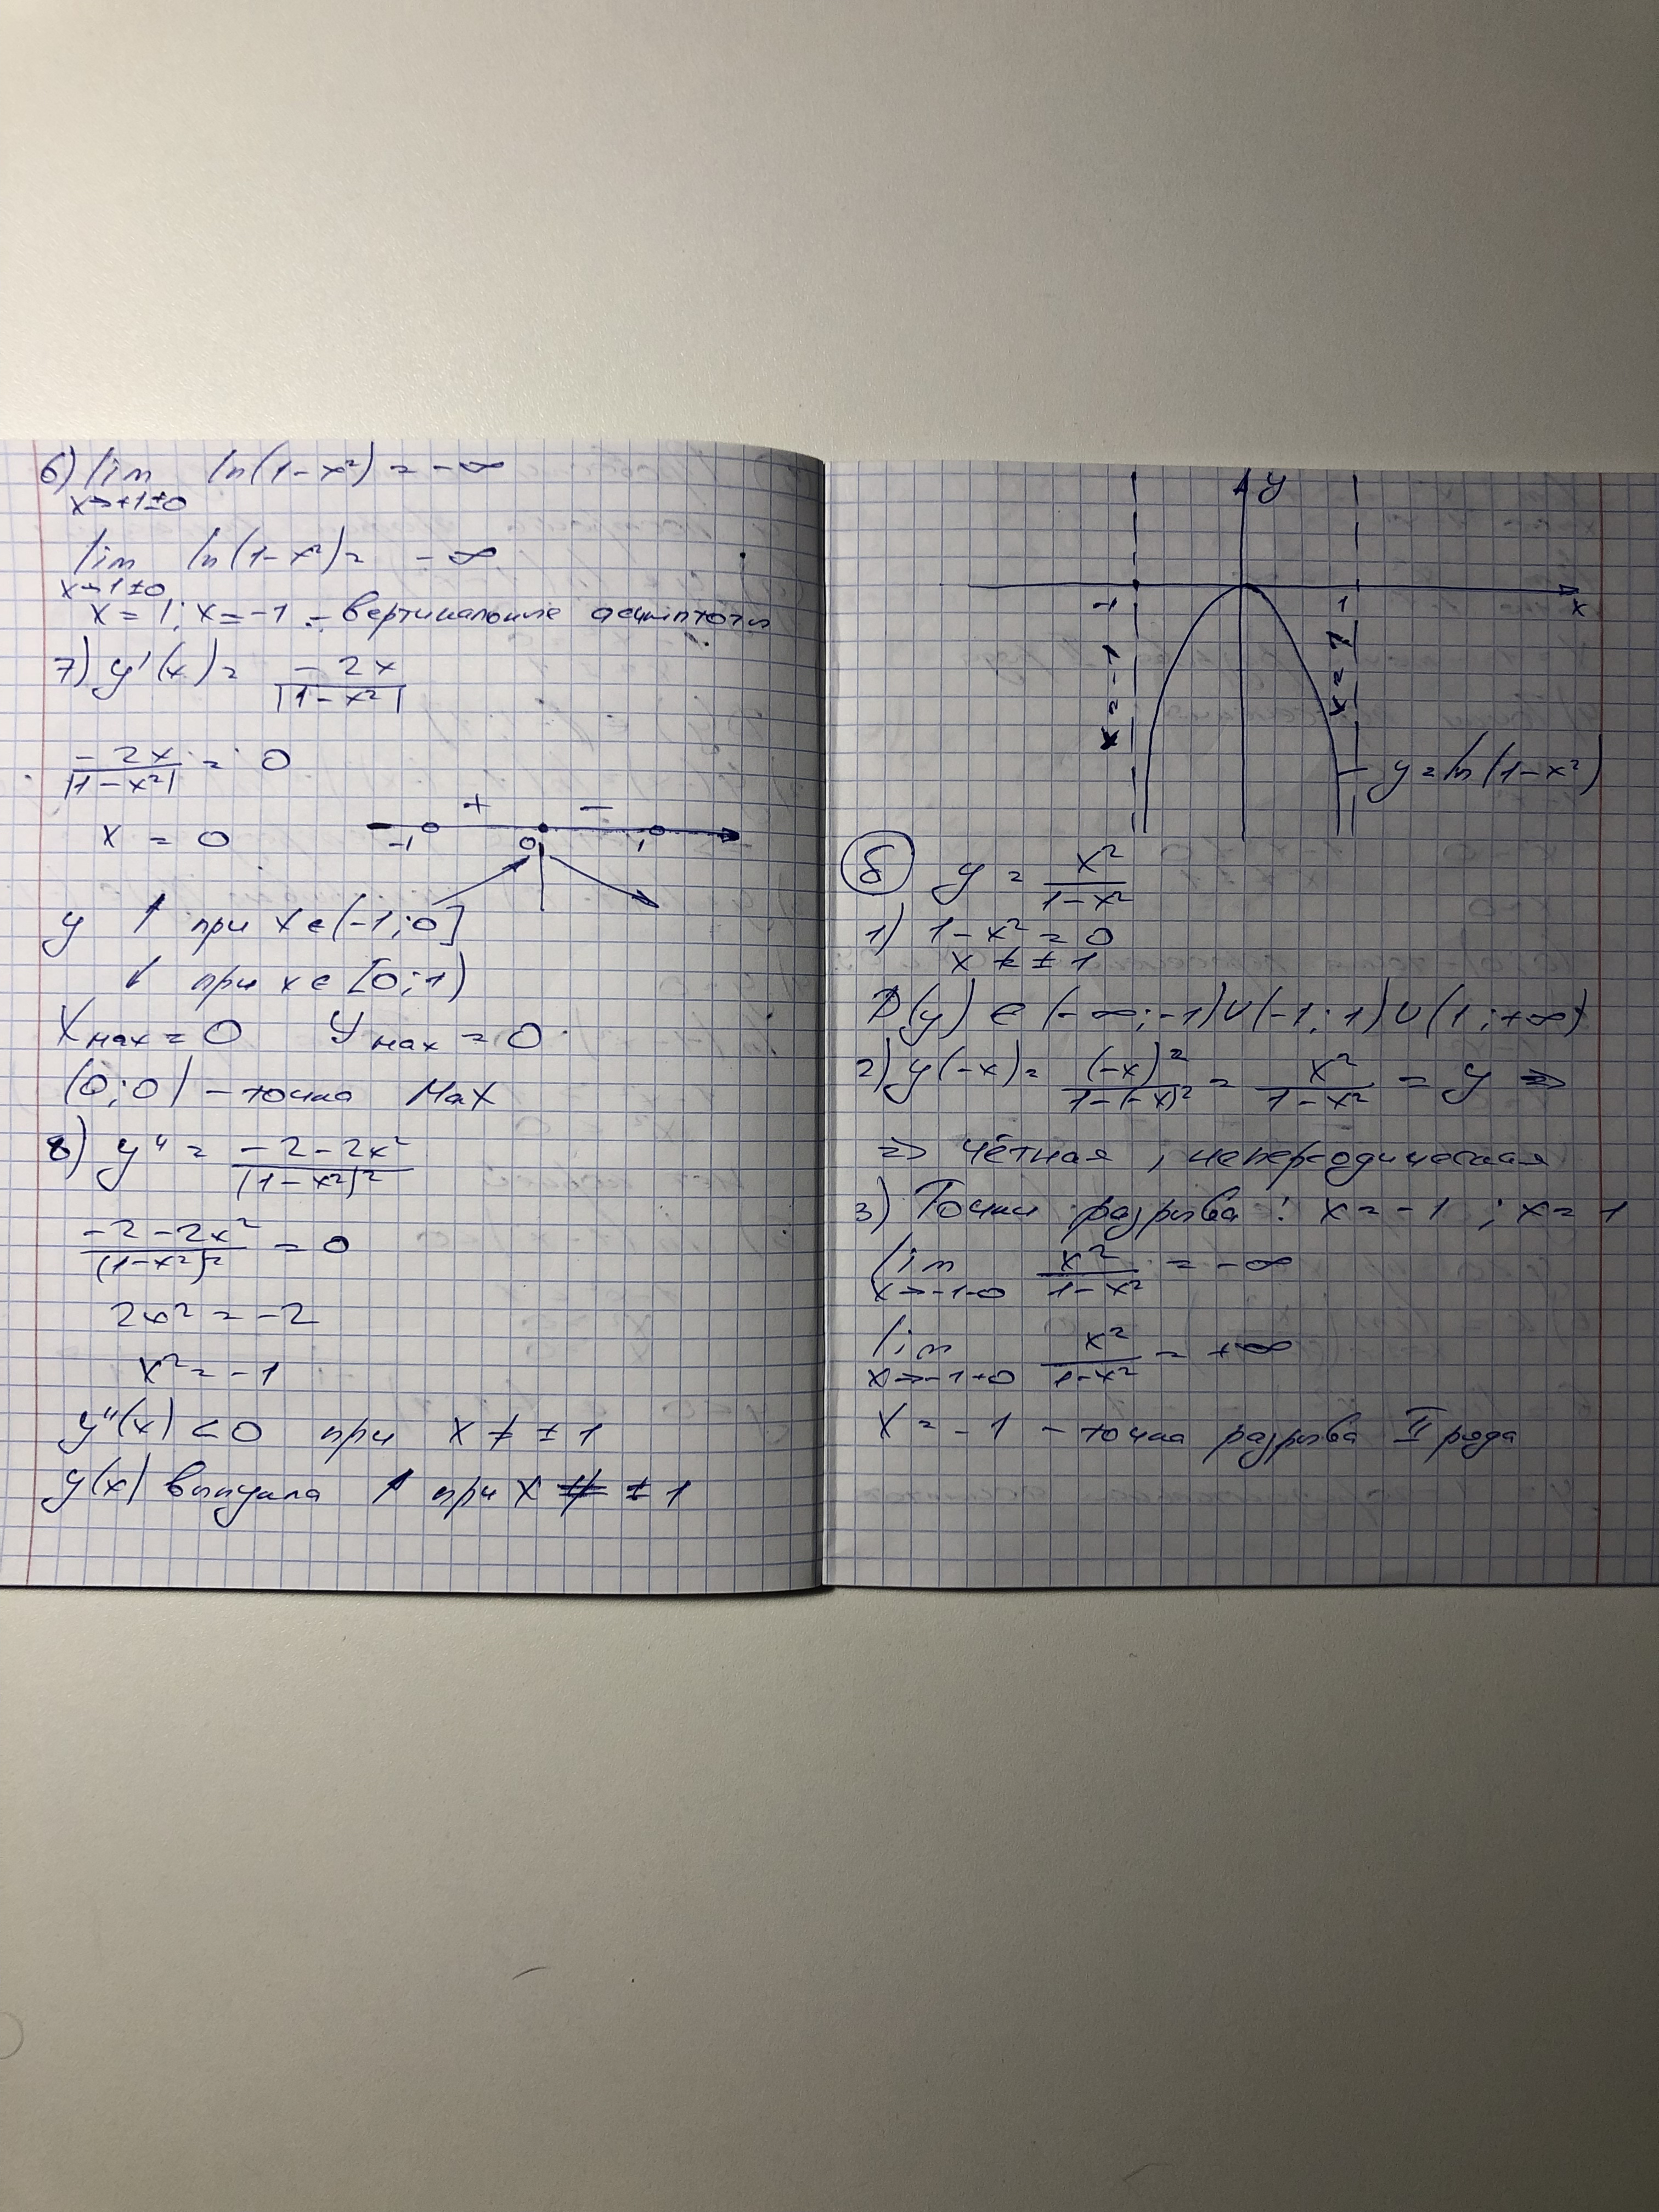 6) lim ln(1-x²) = -∞
x→+1±0
lim ln(1-x²) = -∞
x→1±0
x = 1; x = -1 - вертикальные асимптоты
7) y'(x) = -2x / |1-x²|
-2x / |1-x²| = 0
x = 0
+ -
-1 0 1
y ↑ при x ∈ (-1; 0]
↓ при x ∈ [0; 1)
Xмах = 0 Yмах = 0
(0; 0) - точка мах
8) y'' = -2-2x² / (1-x²)²
-2-2x² / (1-x²)² = 0
2x² = -2
x² = -1
y''(x) < 0 при x ≠ ±1
y(x) выпукла ↑ при x ≠ ±1
y
-1 1 x
x = -1
x = 1
y = ln(1-x²)
б y = x² / 1-x²
1) 1-x² = 0
x ≠ ±1
D(y) ∈ (-∞; -1) ∪ (-1; 1) ∪ (1; +∞)
2) y(-x) = (-x)² / 1-(-x)² = x² / 1-x² = y ⇒
⇒ чётная, непереодическая
3) Точки разрыва: x = -1; x = 1
lim x² / 1-x² = -∞
x→-1-0
lim x² / 1-x² = +∞
x→-1+0
x = -1 - точка разрыва II рода